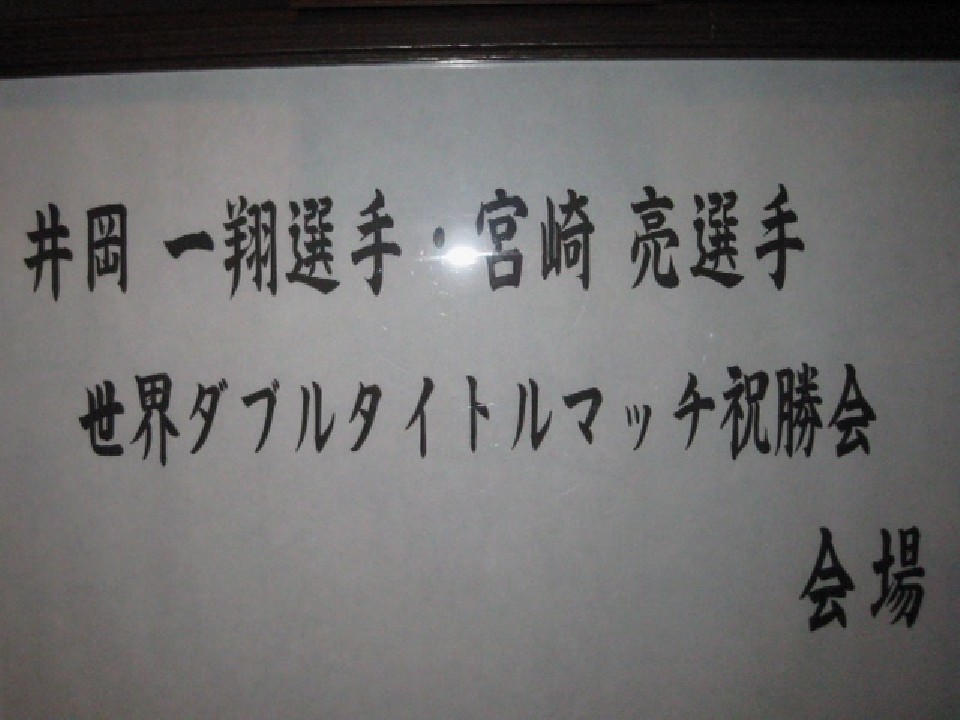 井岡 一翔選手・宮崎 亮選手
世界ダブルタイトルマッチ祝勝会
会場